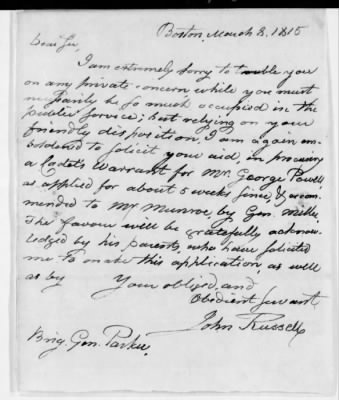 Boston, March 8, 1815
Dear Sir,
I am extremely sorry to trouble you
on any private concern while you must
necessarily be so much occupied in the
public service; but relying on your
friendly disposition, I am again em-
boldened to solicit your aid, in procuring
a Cadet's Warrant for Mr. George Powell
as applied for about 5 weeks since, & recom-
mended to Mr Munroe, by Gen. Miller.
The favour will be gratefully acknow-
ledged by his parents, who have solicited
me to make this application, as well
as by Your obliged, and
Obedient Servant
John Russell
Brig. Gen. Parker.